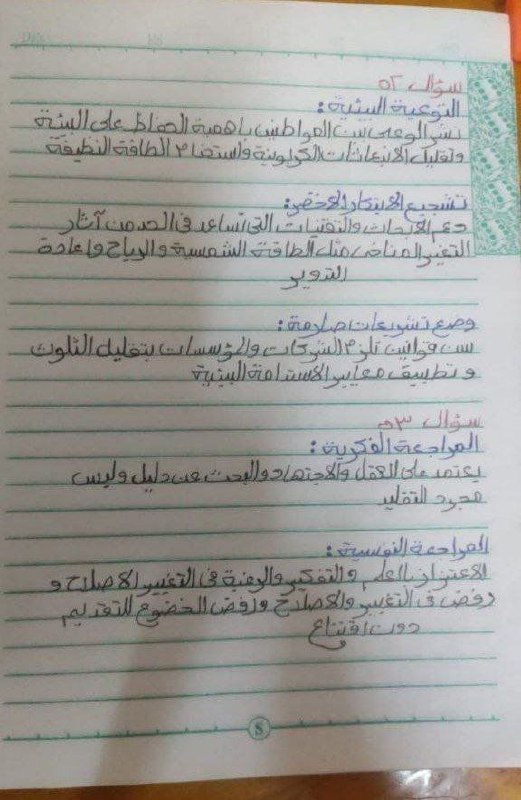 سؤال ٥٢
التوعية البيئية :
نشر الوعي بين المواطنين باهمية الحفاظ على البيئة
وتقليل الانبعاثات الكربونية واستخدام الطاقة النظيفة
تشجيع الابتكار الاخضر:
دعم الابحاث والتقنيات التي تساعد في الحد من آثار
التغير المناخي مثل الطاقة الشمسية والرياح واعادة
التدوير
وضع تشريعات صارمة :
سن قوانين تلزم الشركات والمؤسسات بتقليل التلوث
وتطبيق معايير الاستدامة البيئية
سؤال ٥٣
المراجعة الفكرية :
يعتمد على العقل والاجتهاد والبحث عن دليل وليس
مجرد التقليد
المراجعة النفسية :
الاعتزاز بالعلم والتفكير والرغبة في التغيير الاصلاح و
رفض في التغيير والاصلاح ورفض الخضوع للتقديم
دون اقتناع
8